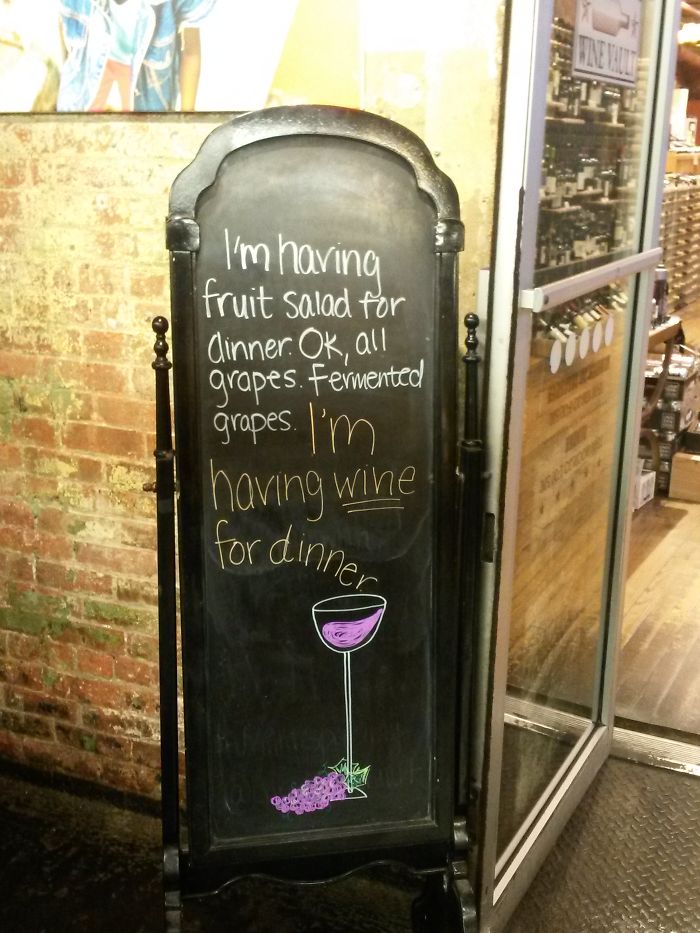 I'm having
fruit salad for
dinner. OK, all
grapes. Fermented
grapes. I'm
having wine
for dinner.
WINE VAULT